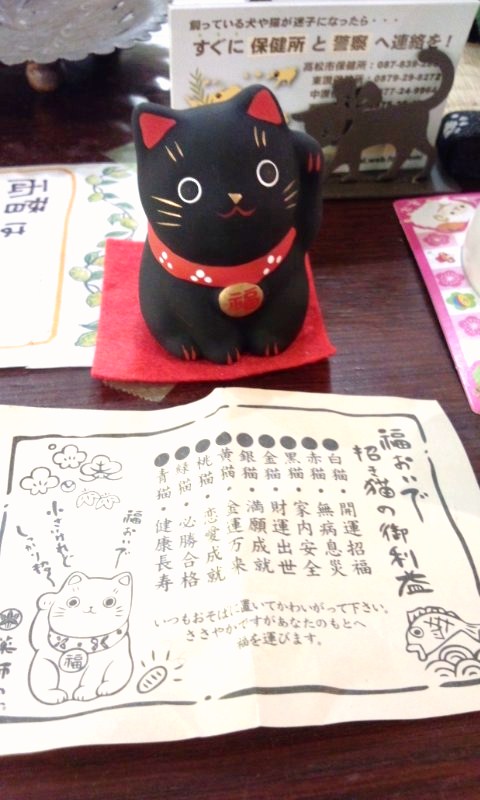 飼っている犬や猫が迷子になったら・・・
すぐに 保健所 と 警察 へ連絡を！
高松市保健所：087-839-
東讃保健所：0879-29-8272
中讃
77-24-9964
福
福おいで
招き猫の御利益
白猫・開運招福
赤猫・無病息災
黒猫・家内安全
金猫・財運出世
銀猫・満願成就
黄猫・金運万来
桃猫・恋愛成就
緑猫・必勝合格
青猫・健康長寿
いつもおそばに置いてかわいがって下さい。
ささやかですがあなたのもとへ
福を運びます。
福おいで
小さいけれど
しっかり招く
福
薬師